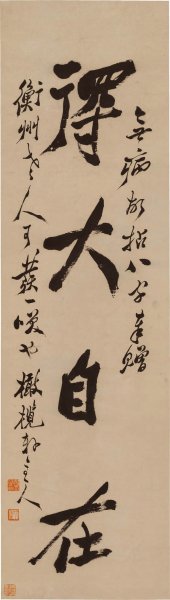 無病拈八字奉贈
大自在
衡州老人可發一笑也 橄欖軒主人